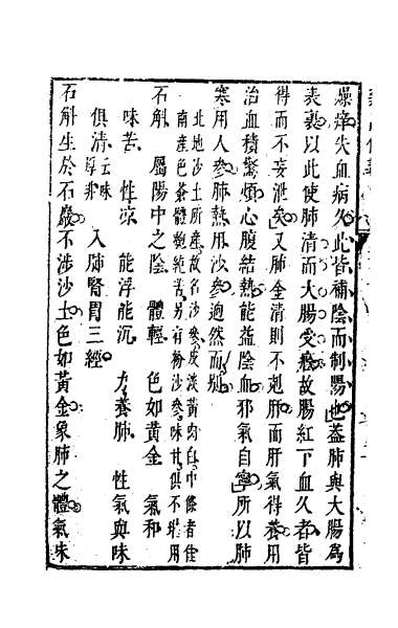 燥癢失血病久此皆補陰而制陽也葢肺與大腸為
表裏以此使肺清而大腸受廕故腸紅下血久者皆
得而不妄泄矣又肺金清則不剋肝而肝氣得養用
治血積驚煩心腹結熱能益陰血邪氣自寧所以肺
寒用人參肺熱用沙參逈然而別
北地沙土所產故名沙參皮淡黃肉白中條者佳
南產色蒼體匏純苦另有粉沙參味甘俱不堪用
石斛 屬陽中之陰 體輕 色如黃金 氣和
味苦 性凉 能浮能沉 力養肺 性氣與味
俱清云味厚非 入肺腎胃三經
石斛生於石巖不涉沙土色如黃金象肺之體氣味